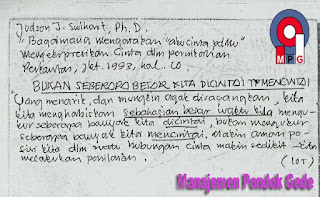 Judson J. Swihart, Ph. D.
"Bagaimana mengatakan "aku cinta padamu"
Menginterpretikan Cinta dlm permainan
Jkt. 1993, hal. 60
BUKAN SEBERAPA BESAR KITA DICINTAI TP MENCINTAI
"Yang menarik, dan mungkin agak disayangkan, kita
kita menghabiskan sebahagian besar waktu kita mengu-
kur seberapa banyak kita dicintai, bukan mengukur
seberapa banyak kita mencintai. Makin aman po-
sisi kita dlm suatu hubungan cinta makin sedikit kita
melakukan penilaian.
MPG
Manajemen Pondok Gede